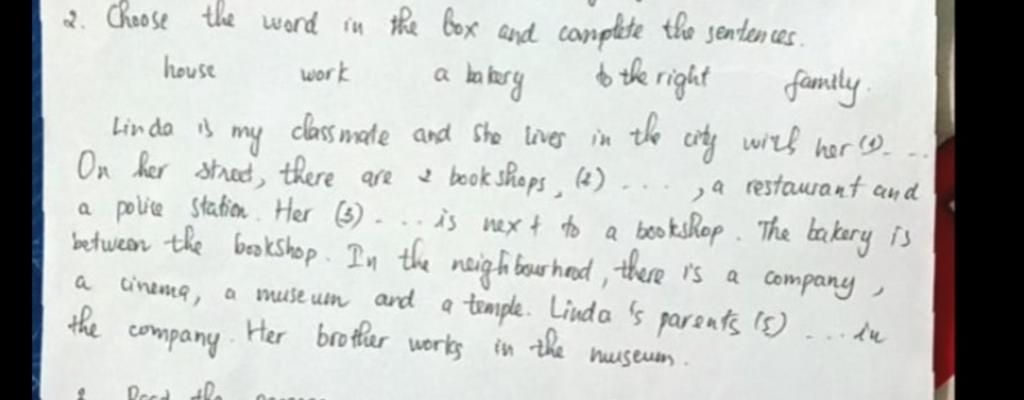 2. Choose the word in the box and complete the sentences.
house work a bakery to the right family.
Linda is my classmate and she lives in the city with her (1)....
On her street, there are 2 bookshops, (2) ...., a restaurant and
a police station. Her (3) .... is next to a bookshop. The bakery is
between the bookshop. In the neighbourhood, there is a company,
a cinema, a museum and a temple. Linda's parents (5) .... in
the company. Her brother works in the museum.
Read the